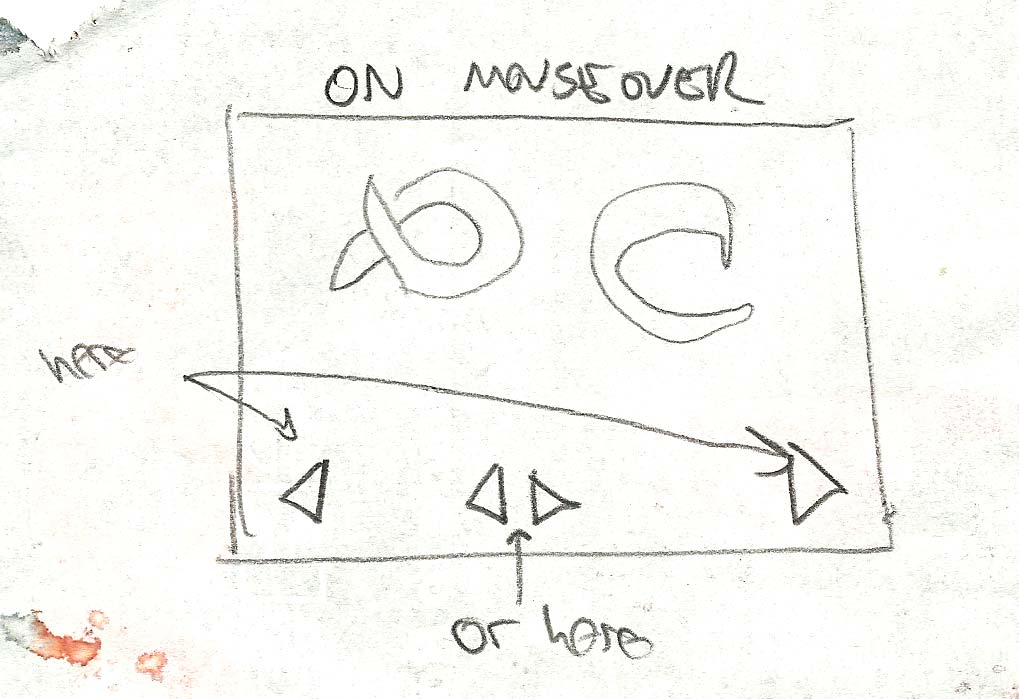 ON MOUSEOVER
here
or here